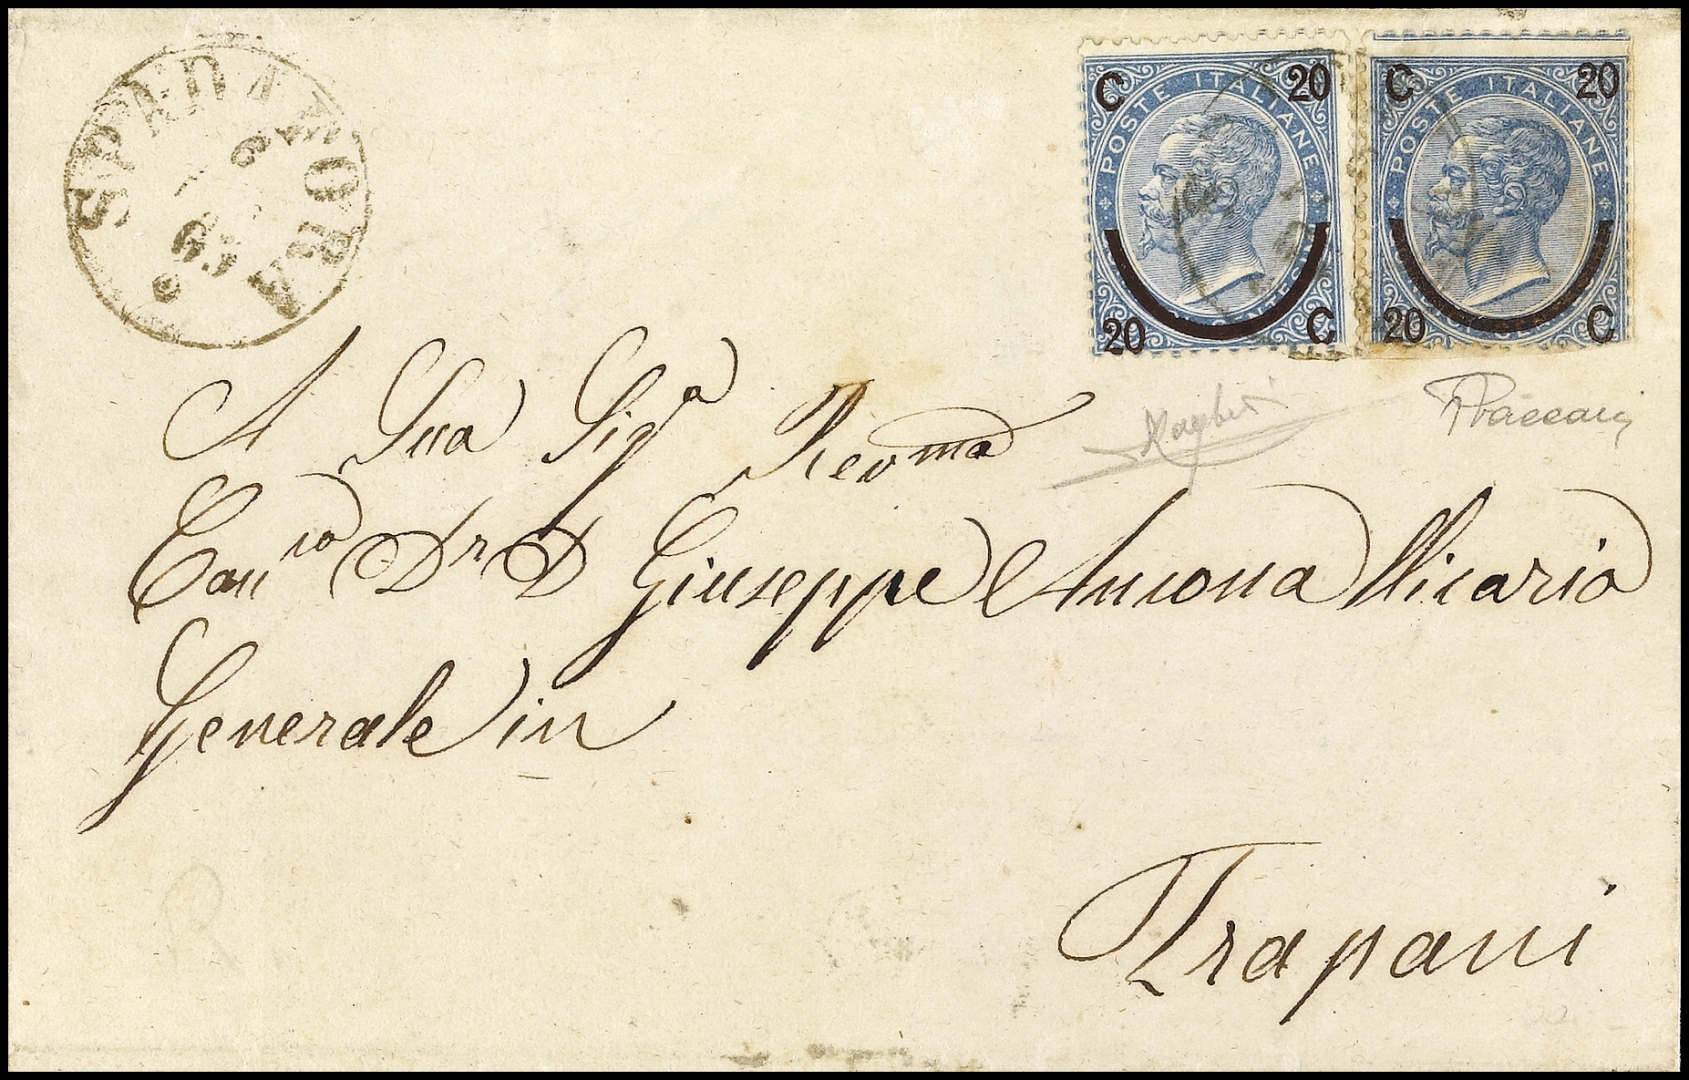 SPADAFORA
6
65
C 20
POSTE ITALIANE
20 C
C 20
POSTE ITALIANE
20 C
A Sua Sig.a Rev.ma
Can.co Dr. D. Giuseppe Ancona Vicario
Generale in
Trapani